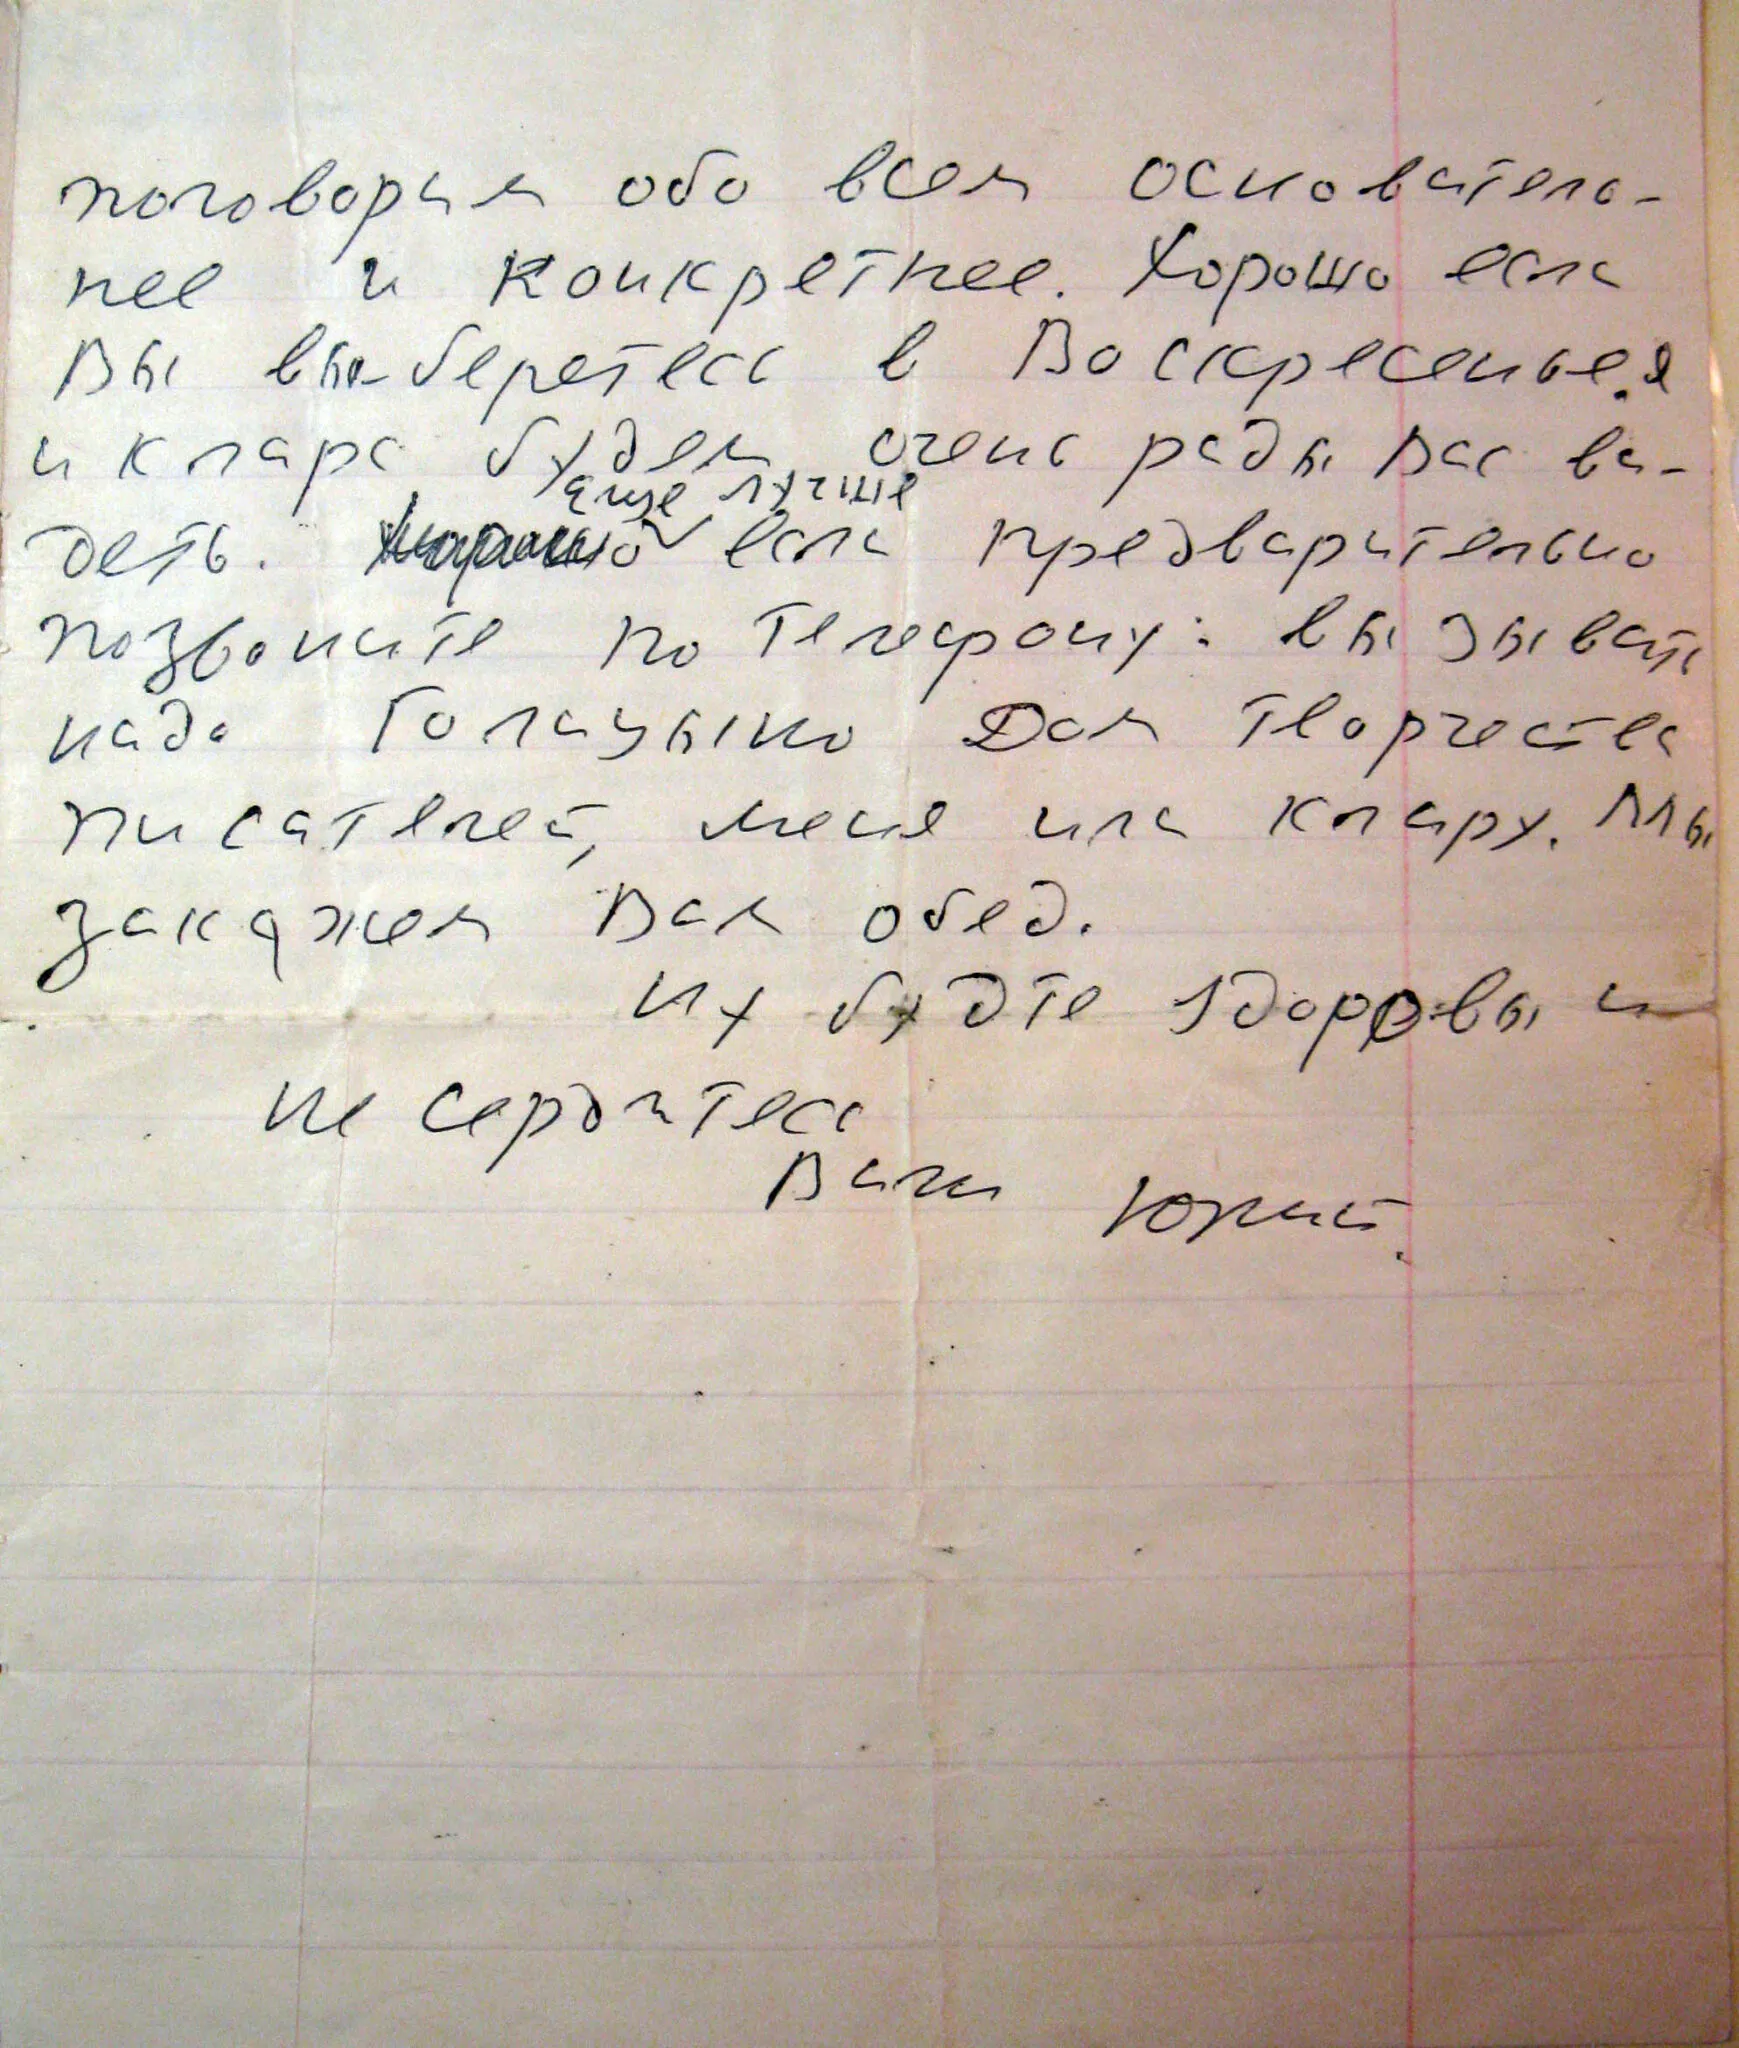 поговорим обо всем основатель-
нее и конкретнее. Хорошо если
Вы вы-беретесь в Воскресенье. Я
и Клара будем очень рады Вас ви-
еще лучше
деть. если предварительно
позвоните по телефону: вызывать
надо Голицыно Дом творчества
писателей, меня или Клару. Мы
закажем Вам обед.
Ну будте здоровы и
не сердитесь
Ваш Юрий.